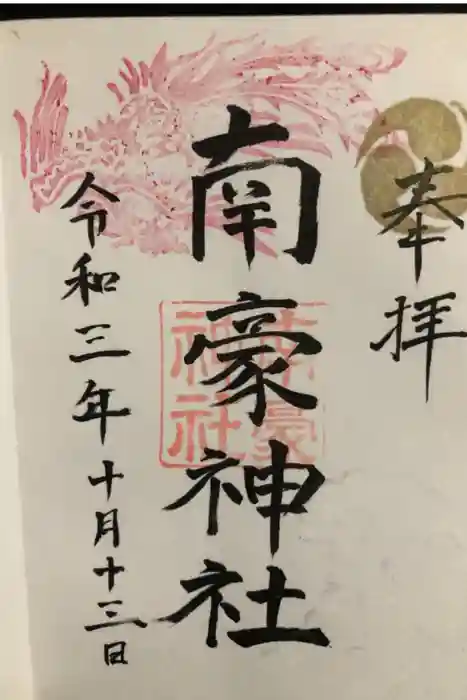 奉拝
南豪神社
南豪神社
令和三年十月十三日